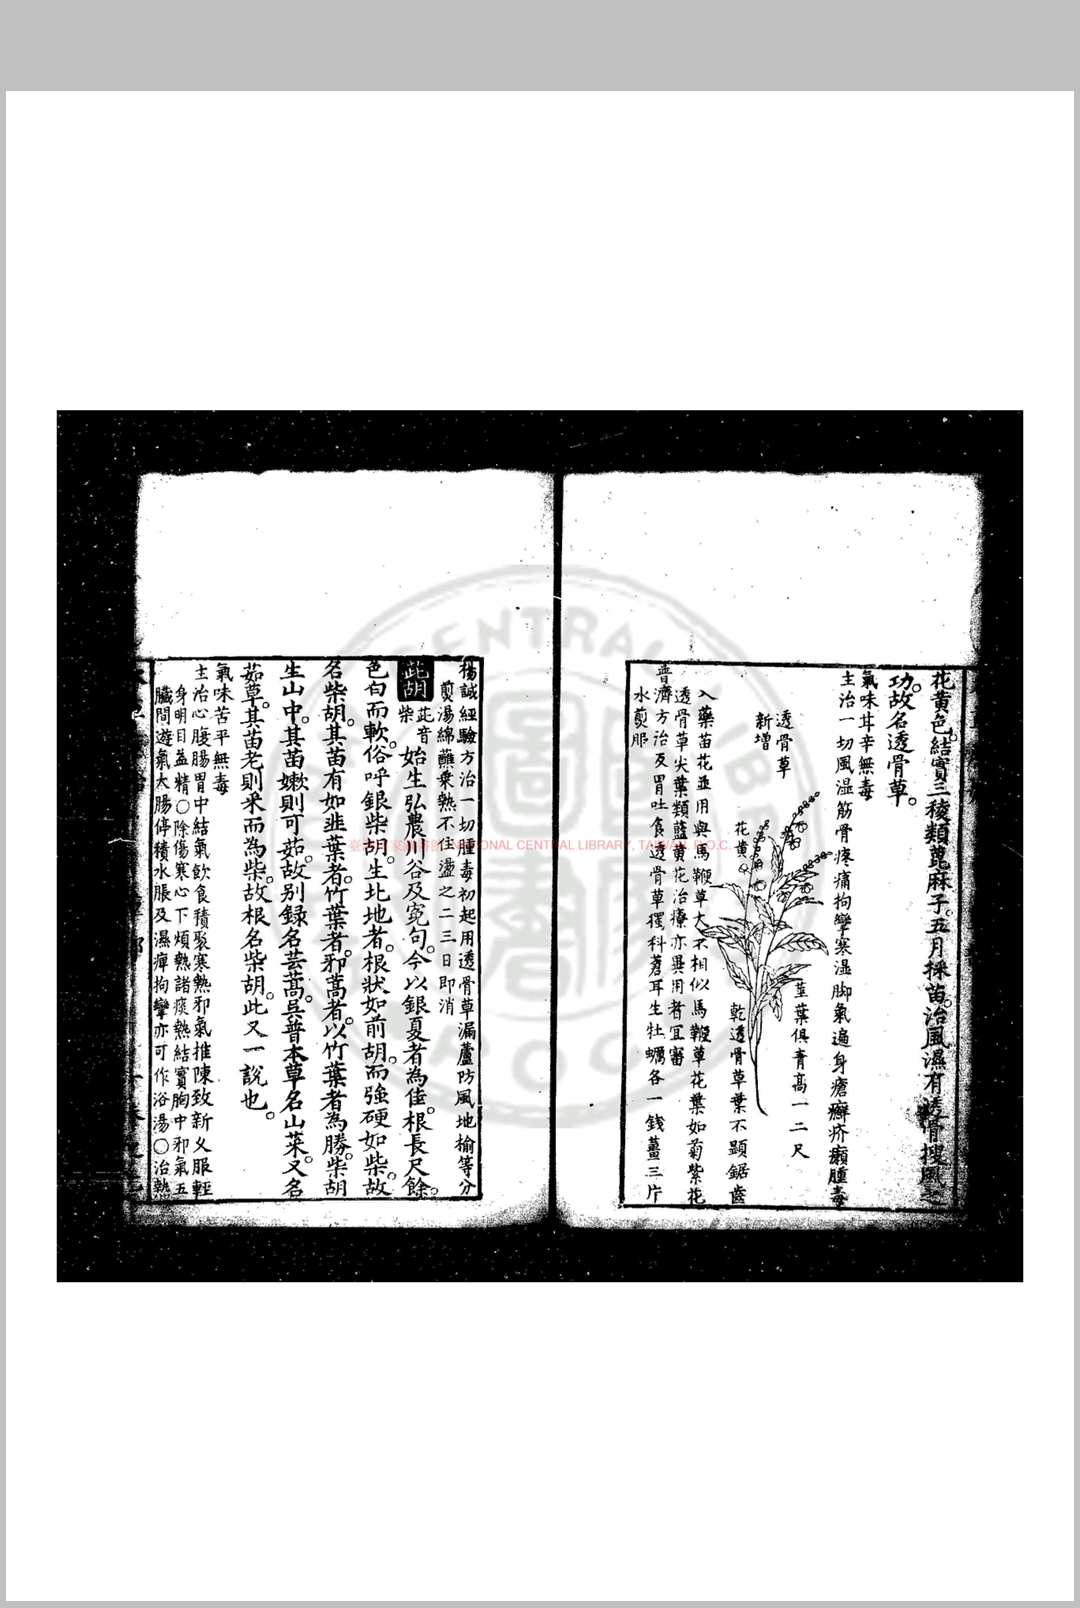 花黄色結實三稜類蓖麻子。五月採苗治風濕有透骨搜風之
功故名透骨草。
氣味甘辛無毒
主治一切風湿筋骨疼痛拘攣寒湿脚氣遍身瘡癬疥癩腫毒
透骨草
新增
花黄
莖葉俱青高一二尺
乾透骨草葉不顕鋸齒
入藥苗花並用與馬鞭草大不相似馬鞭草花葉如菊紫花
透骨草尖葉類藍黄花治療亦異用者宜審
普濟方治反胃吐食透骨草獨科蒼耳生牡蠣各一錢薑三片
水煎服
楊誠經驗方治一切腫毒初起用透骨草漏蘆防風地榆等分
煎湯綿蘸乗熱不住盪之二三日即消
茈胡
茈音
柴
始生弘農川谷及寃句。今以銀夏者為佳。根長尺餘。
色白而軟。俗呼銀柴胡。生北地者。根狀如前胡。而強硬如柴。故
名柴胡。其苗有如韭葉者。竹葉者。邪蒿者。以竹葉者為勝。柴胡
生山中。其苗嫩則可茹故别録名芸蒿。吳普本草名山菜。又名
茹草。其苗老則采而為柴。故根名柴胡。此又一說也。
氣味苦平無毒
主治心腹腸胃中結氣飲食積聚寒熱邪氣推陳致新乆服輕
身明目益精〇除傷寒心下煩熱諸痰熱結實胸中邪氣五
臟間遊氣大腸停積水脹及濕痺拘攣亦可作浴湯〇治熱
臺 NATIONAL CENTRAL LIBRARY, TAIWAN, R.O.C.